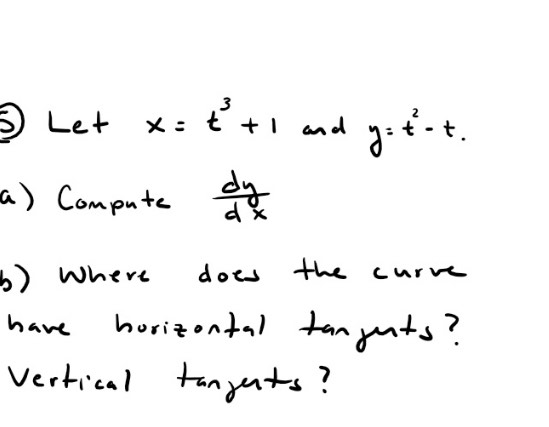 ⑤ Let x = t³ + 1 and y = t² - t.
a) Compute dy/dx
b) Where does the curve
have horizontal tangents?
Vertical tangents?